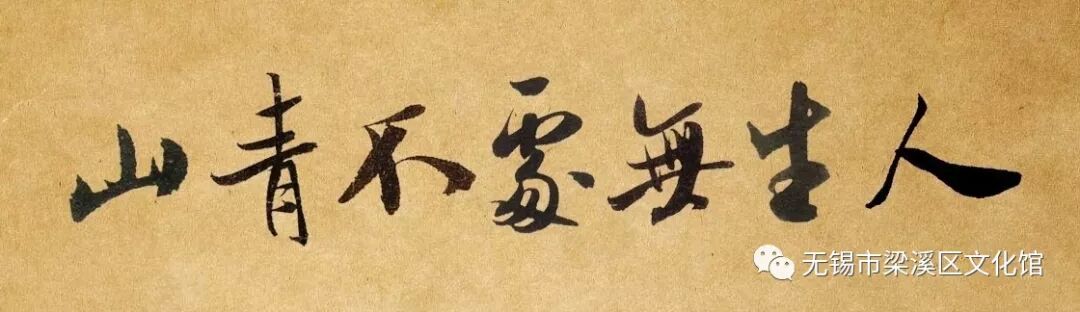 人生無處不青山
无锡市梁溪区文化馆